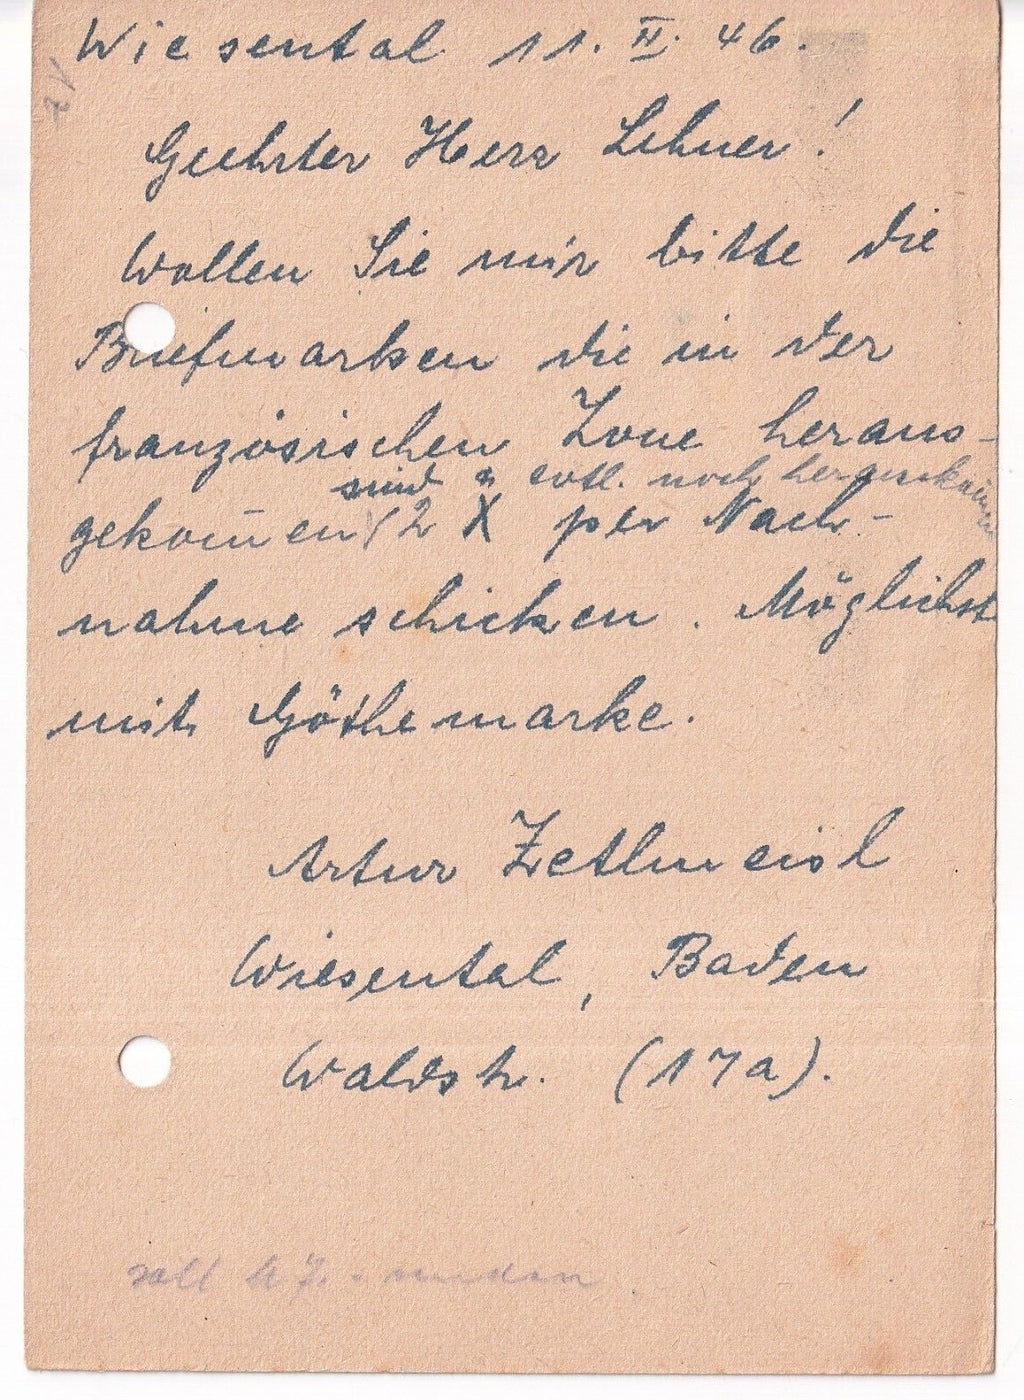 Wiesental 11. II. 46.
Geehrter Herr Lehner!
Wollen Sie mir bitte die
Briefmarken die in der
französischen Zone heraus-
sind u evtl. noch herauskom̄en
gekom̄en (2 X per Nach-
nahme schicken. Möglichst
mit Göthemarke.
Artur Zetlmeisl
Wiesental, Baden
Waldstr. (17a).